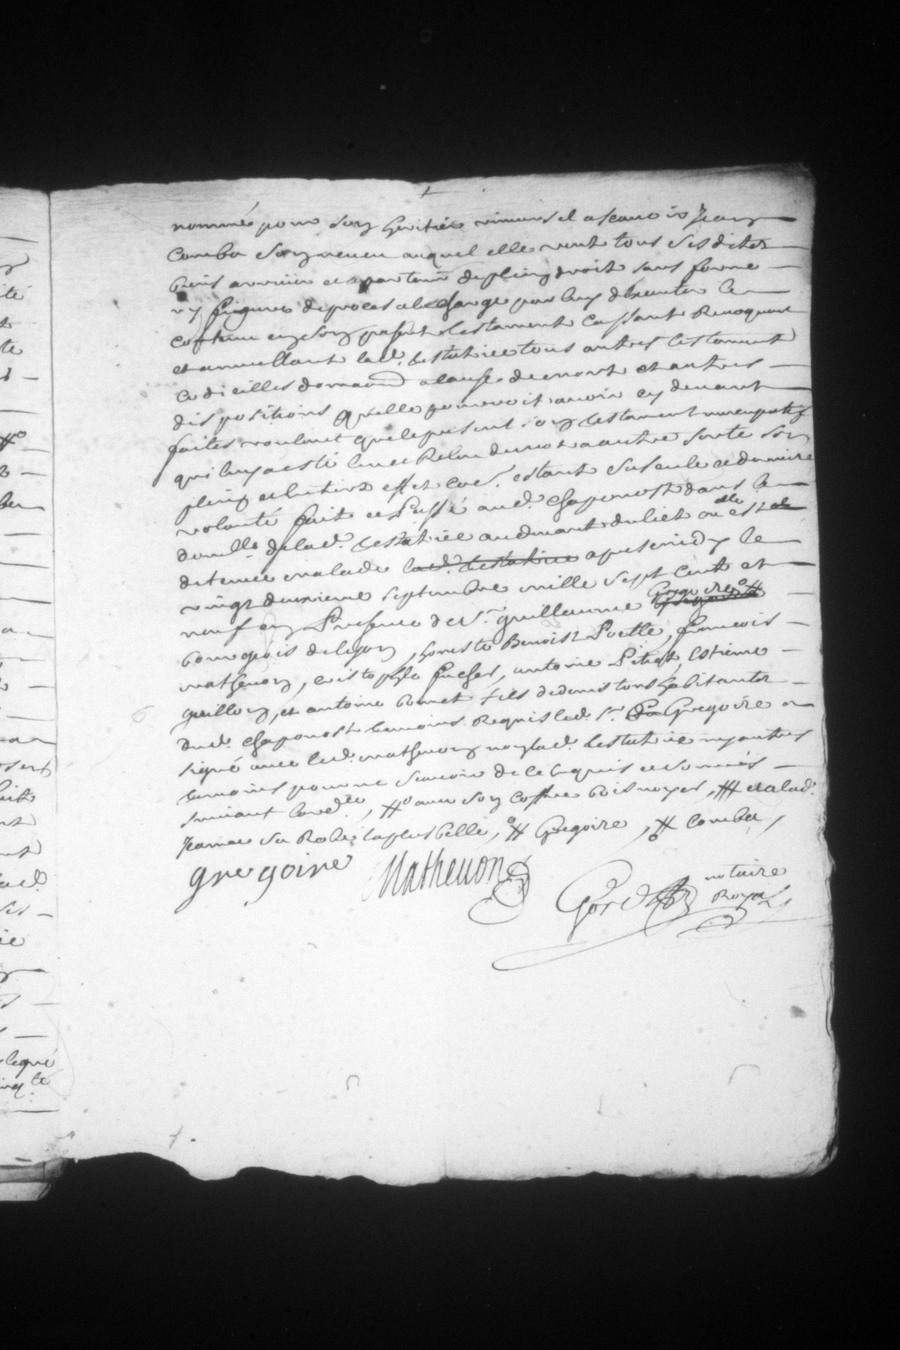 nommé pour son heritier universel a scavoir Jean
Comba son neveu auquel elle veut tous sesdits
biens arriver et appartenir de plein droit sans forme
ny figure de proces a la charge par luy dexecuter le
contenu en son present testament cassant Revoquant
et annullant lad. testatrice tous autres testaments
codicilles donnaõns a cause de mort et autres
dispositions quelle pourroit avoir cy devant
faites voulant que le present son testament nuncupatif
qui luy a esté leu et Releu de mot a autre sorte son
plein et entier effet co͞e. estant sa seule et derniere
volonté fait et Passé aud. chaponost dans le
domille. de lad. testatrice au devant du liet ou elle est
detenue malade lad. testatrice apres midy le
vingt deuxieme septembre mille sept cent et
neuf en Presence de sr. guillaume Gregoire
bourgeois de lyon, honeste Benoist Poette, francois
mathevon, cristophle sucher, antoine Pitiot, Estienne
guillon, et antoine bonnet fils de denis tous habitants
dud. chaponost temoins Requis led. sr. Gregoire a
signé avec led. mathevon non lad. testatrice ny autres
temoins pour ne scavoir de ce Enquis et sommés
suivant lordce, # avec son coffre bois noyer, ## et a lad.
Jeanne sa Robe la plus belle, # Gregoire, # Comba,
gregoire Mathevon
notaire
Royal